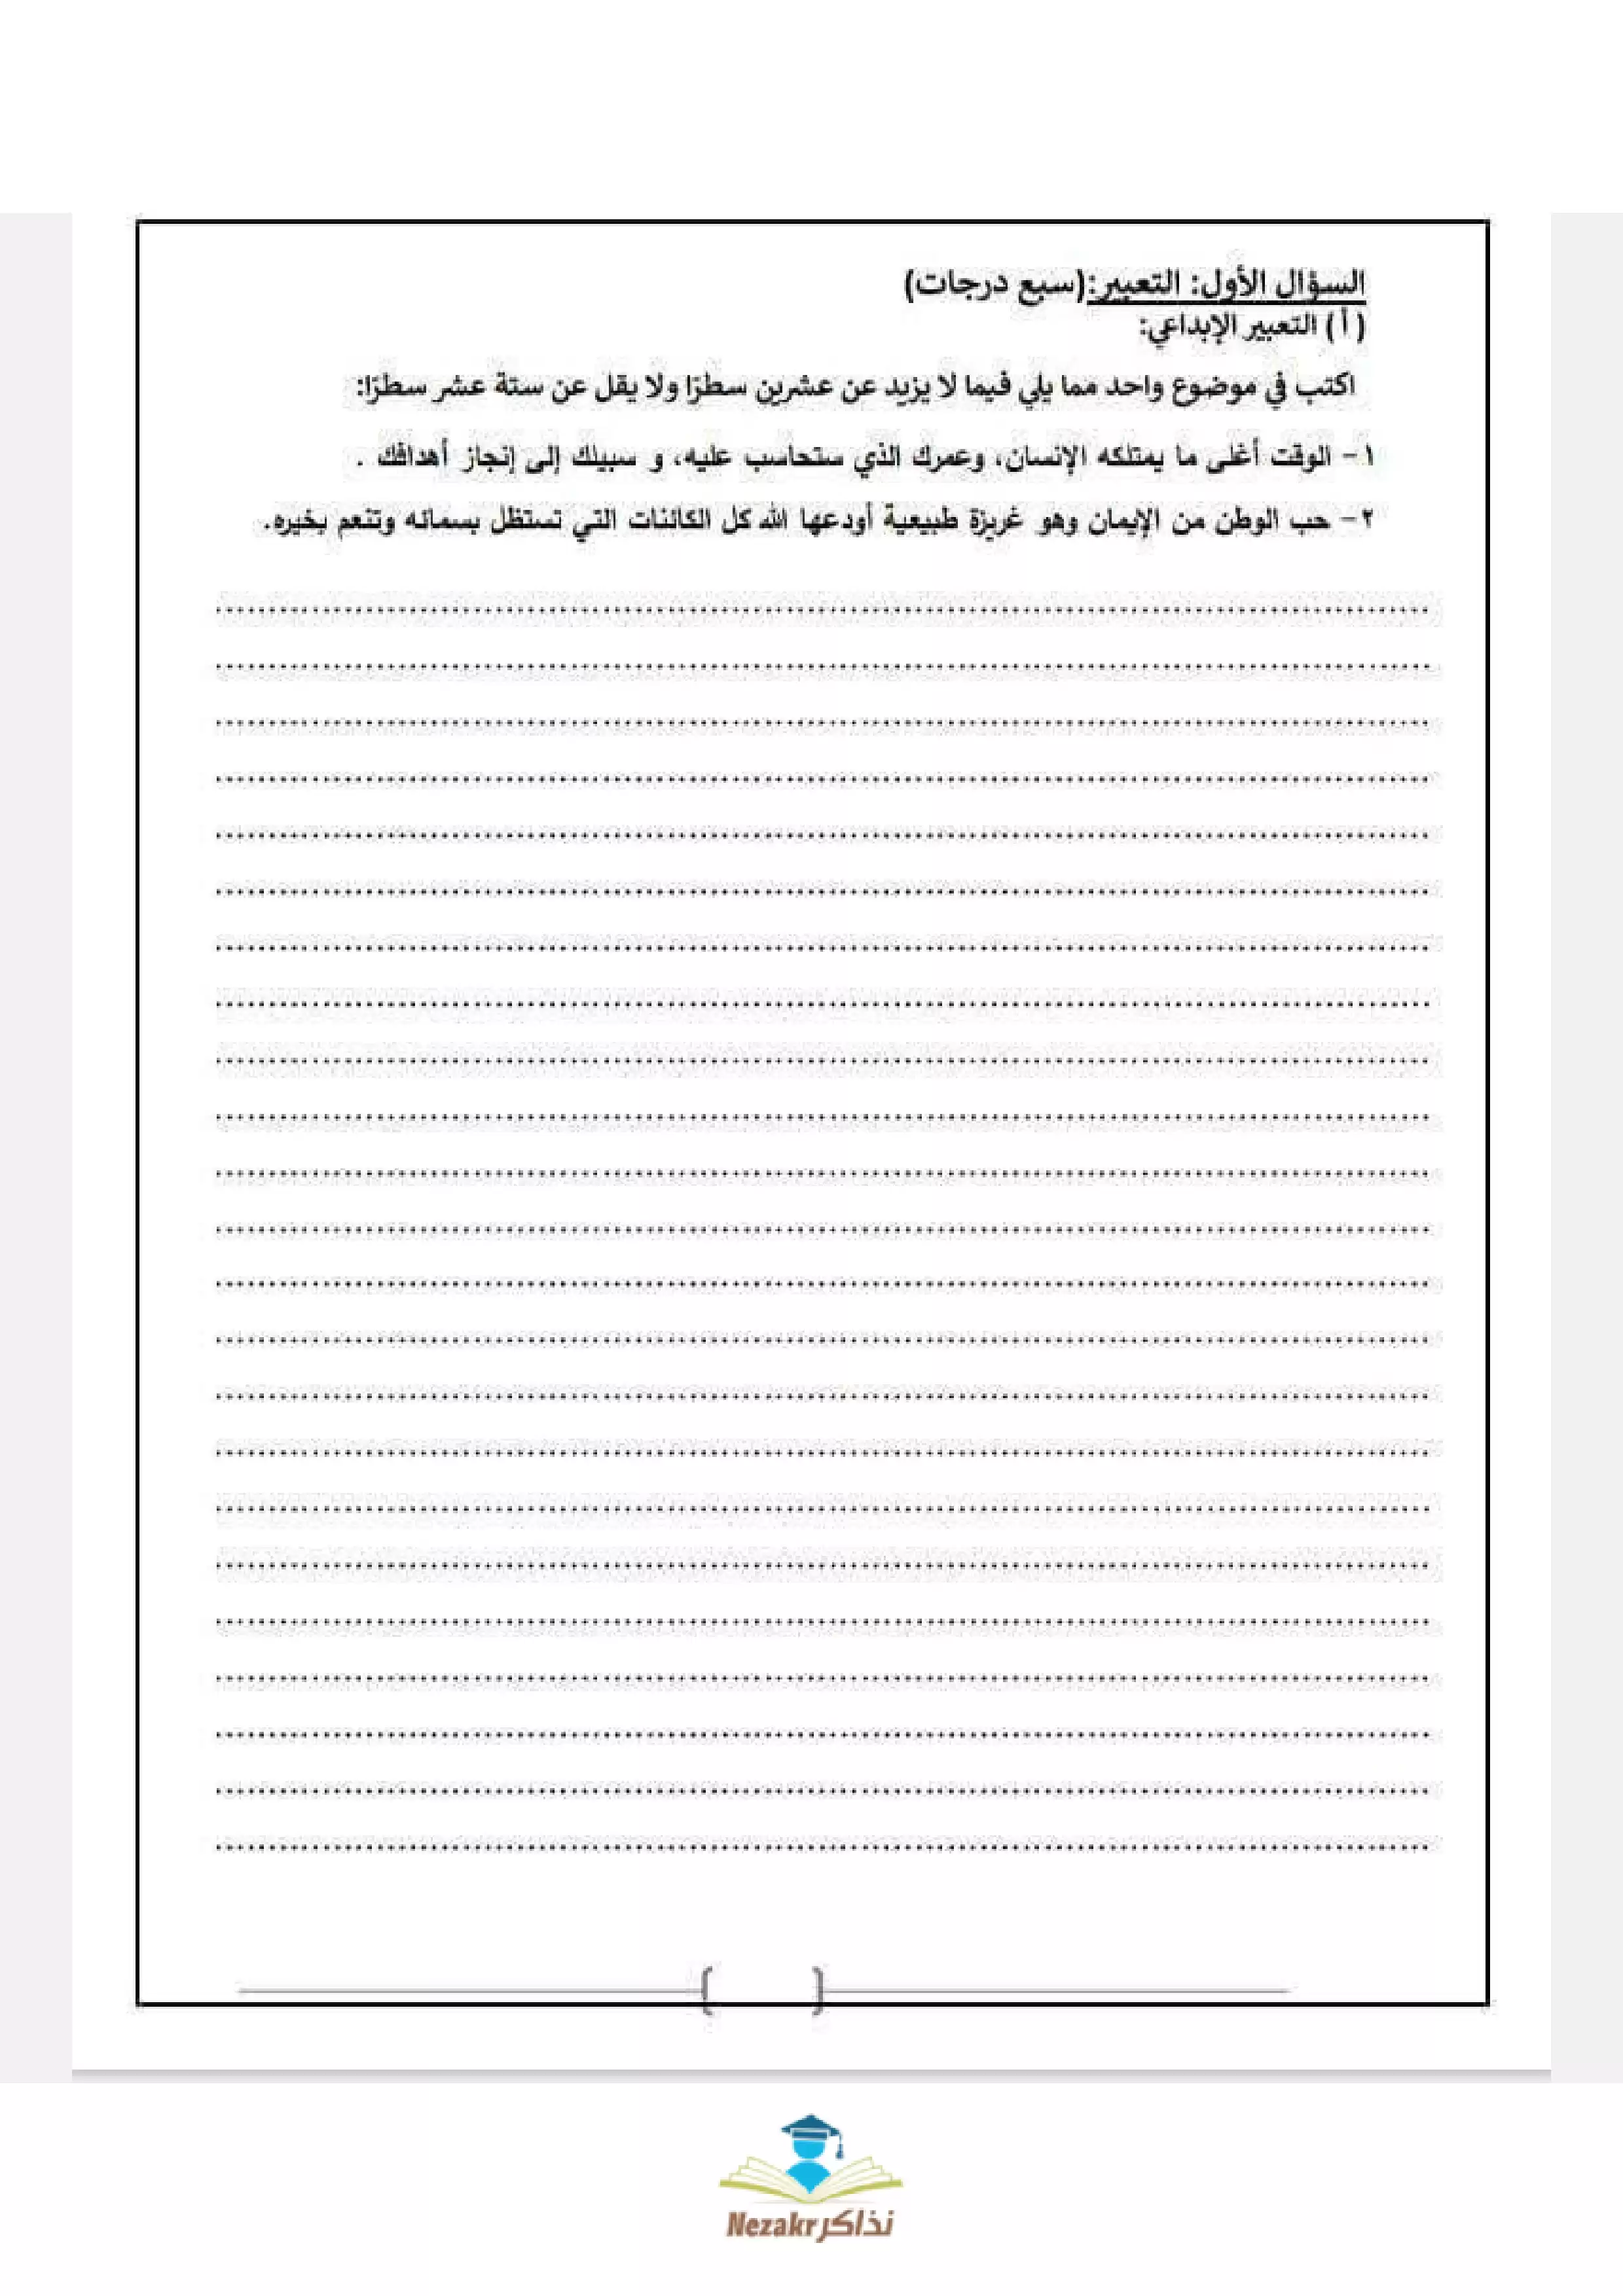 السؤال الأول: التعبير:(سبع درجات)
( أ ) التعبير الإبداعي:
اكتب في موضوع واحد مما يلي فيما لا يزيد عن عشرين سطرًا ولا يقل عن ستة عشر سطرًا:
١- الوقت أغلى ما يمتلكه الإنسان، وعمرك الذي ستحاسب عليه، و سبيلك إلى إنجاز أهدافك .
٢- حب الوطن من الإيمان وهو غريزة طبيعية أودعها الله كل الكائنات التي تستظل بسمائه وتنعم بخيره.
Nezakr نذاكر